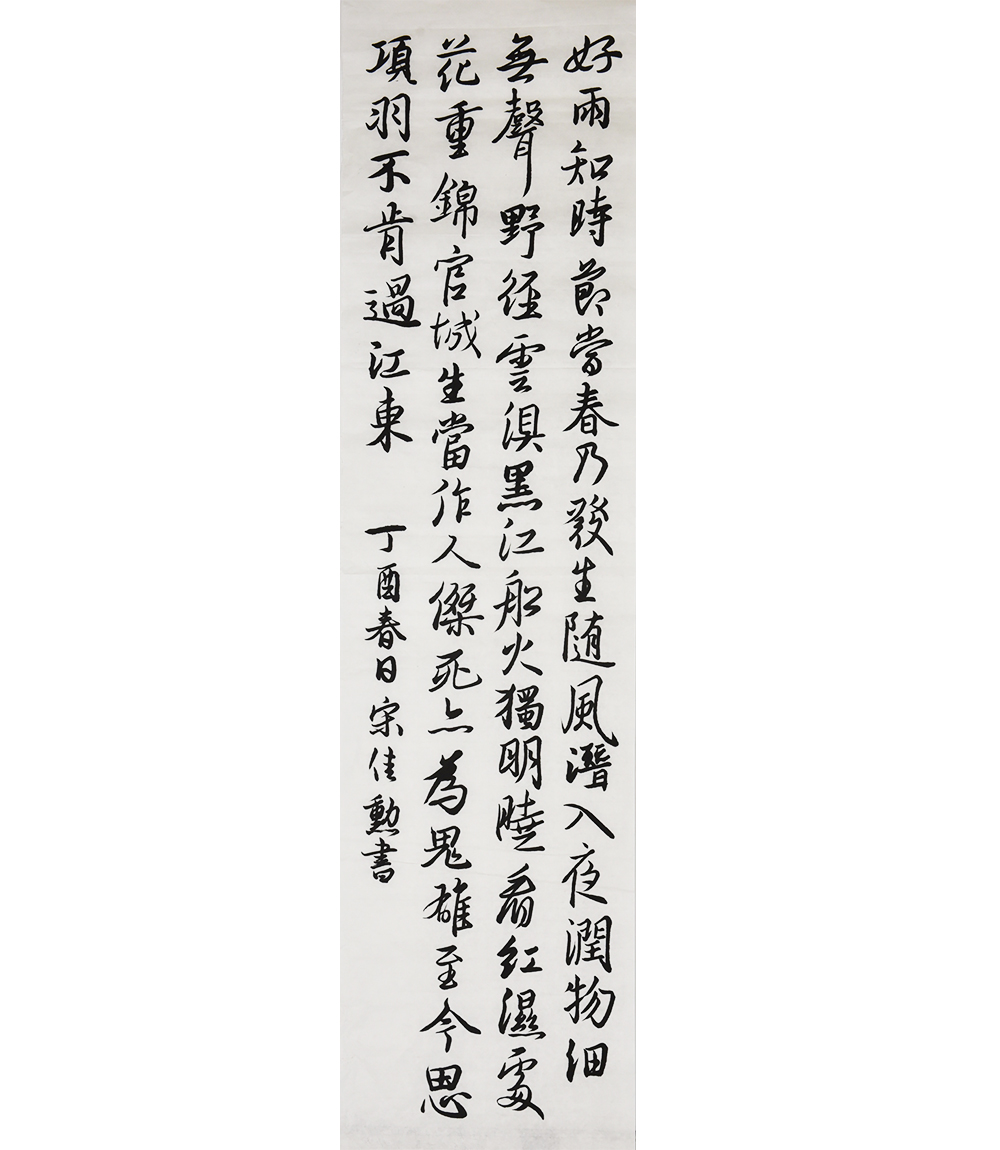 好雨知時節當春乃發生随風潛入夜潤物細
無聲野徑雲俱黑江船火獨明曉看紅濕處
花重錦官城生當作人傑死亦為鬼雄至今思
項羽不肯過江東 丁酉春日宋佳勳書